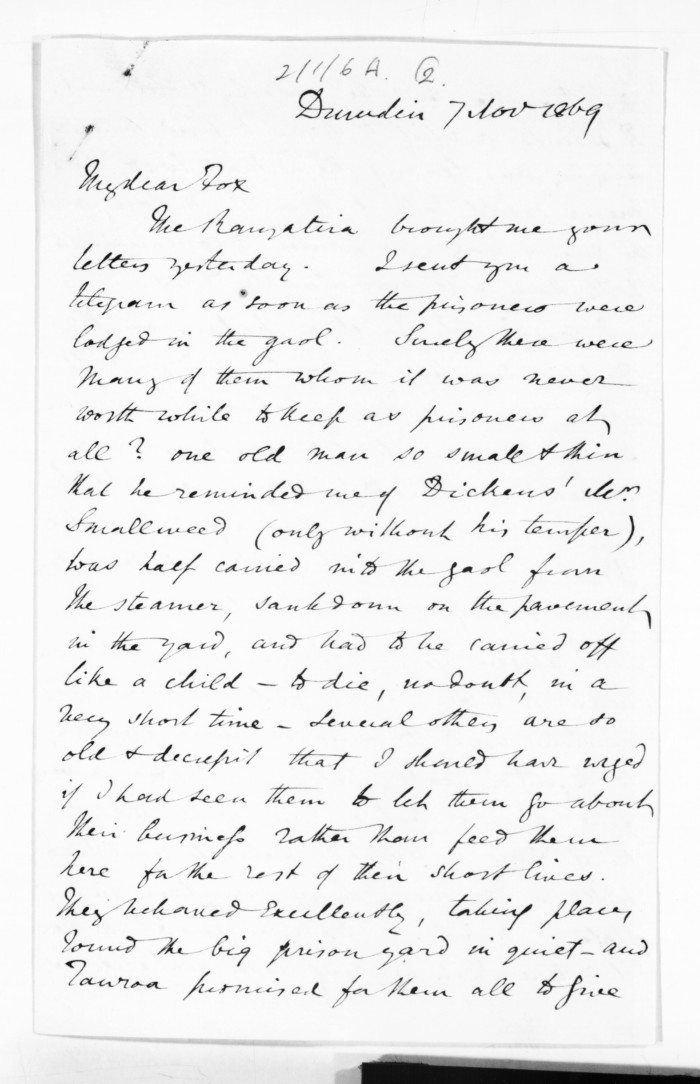 2/1/6A. (2).
Dunedin 7 Nov 1869
My dear Fox
The Rangatira brought me your
letters yesterday. I sent you a
telegram as soon as the prisoners were
lodged in the gaol. Surely there were
many of them whom it was never
worth while to keep as prisoners at
all? one old man so small & thin
that he reminded me of Dickens' Mr.
Smallweed (only without his temper),
was half carried into the gaol from
the steamer, sank down on the pavement
in the yard, and had to be carried off
like a child - to die, no doubt, in a
very short time - Several others are so
old & decrepit that I should have urged
if I had seen them to let them go about
their business rather than feed them
here for the rest of their short lives.
They behaved excellently, taking places
round the big prison yard in quiet - and
Tauroa promised for them all to give